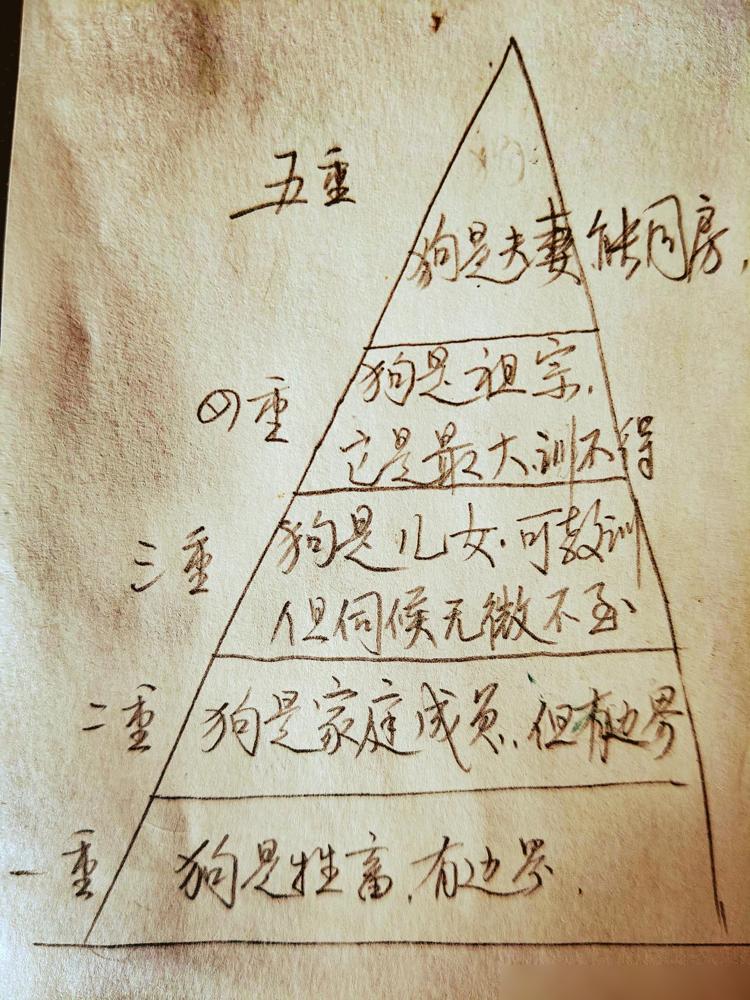 五重
狗是夫妻能同房,
四重
狗是祖宗,
它是最大训不得
三重
狗是儿女.可教训
但伺候无微不至
二重
狗是家庭成员,但有边界
一重
狗是牲畜,有边界.